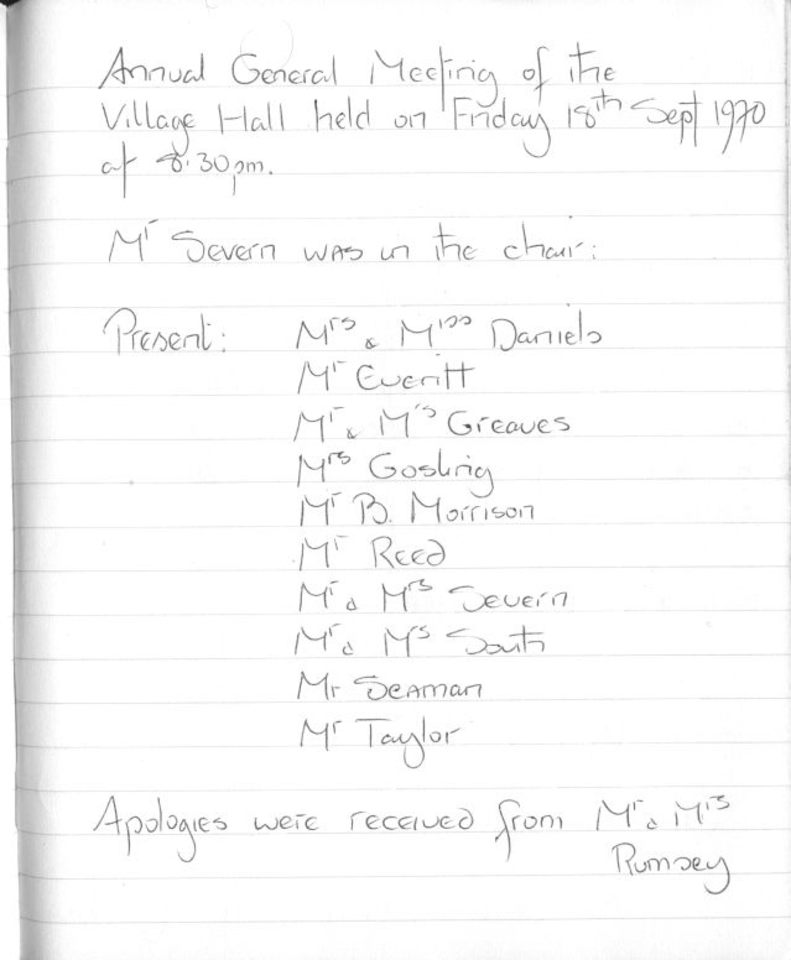 Annual General Meeting of the
Village Hall held on Friday 18th Sept 1970
at 8.30pm.
Mr Severn was in the chair:
Present: Mrs & Miss Daniels
Mr Everitt
Mr & Mrs Greaves
Mrs Gosling
Mr B. Morrison
Mr Reed
Mr & Mrs Severn
Mr & Mrs South
Mr Seaman
Mr Taylor
Apologies were received from Mr & Mrs
Rumsey